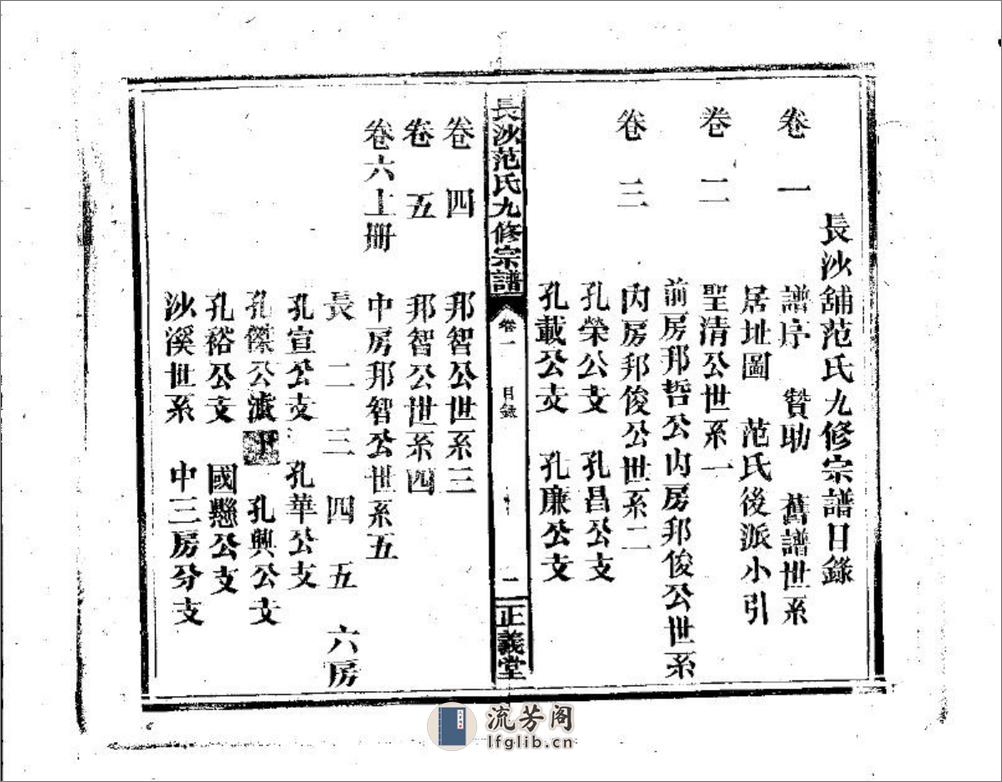 長沙舖范氏九修宗譜目錄
卷一
譜序 贊助 舊譜世系
居址圖 范氏後派小引
卷二
聖清公世系一
前房邦哲公內房邦俊公世系
卷三
內房邦俊公世系二
孔榮公支 孔昌公支
孔載公支 孔廉公支
長沙范氏九修宗譜
卷一
目錄
二
正義堂
卷四
邦智公世系三
卷五
邦智公世系四
卷六上册
中房邦智公世系五
長 二 三 四 五 六房
孔宣公支 孔華公支
孔傑公派下 孔興公支
孔裕公支 國懸公支
沙溪世系 中三房分支
流芳阁
lfglib.cn